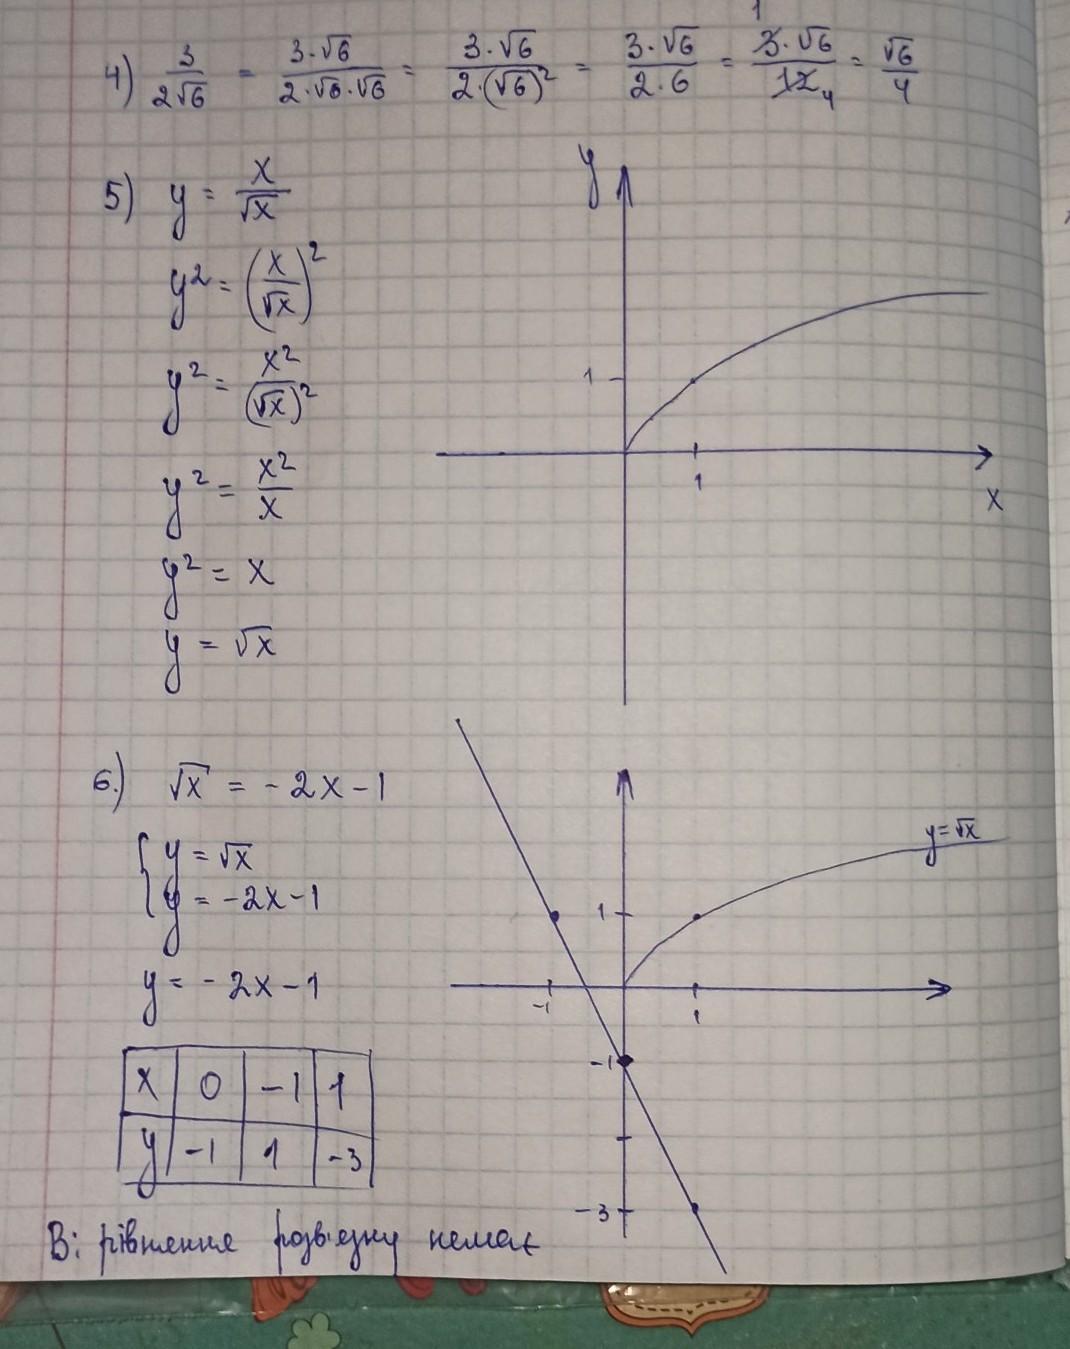 4) 3/(2√6) = (3·√6)/(2·√6·√6) = (3·√6)/(2·(√6)²) = (3·√6)/(2·6) = (3·√6)/12 = √6/4
1
4
5) y = x/√x
y² = (x/√x)²
y² = x²/(√x)²
y² = x²/x
y² = x
y = √x
y
1
1
x
6.) √x = -2x-1
{ y = √x
y = -2x-1
y = -2x-1
x 0 -1 1
y -1 1 -3
y=√x
1
-1 1
-1
-3
В: рівняння розв'язку немає